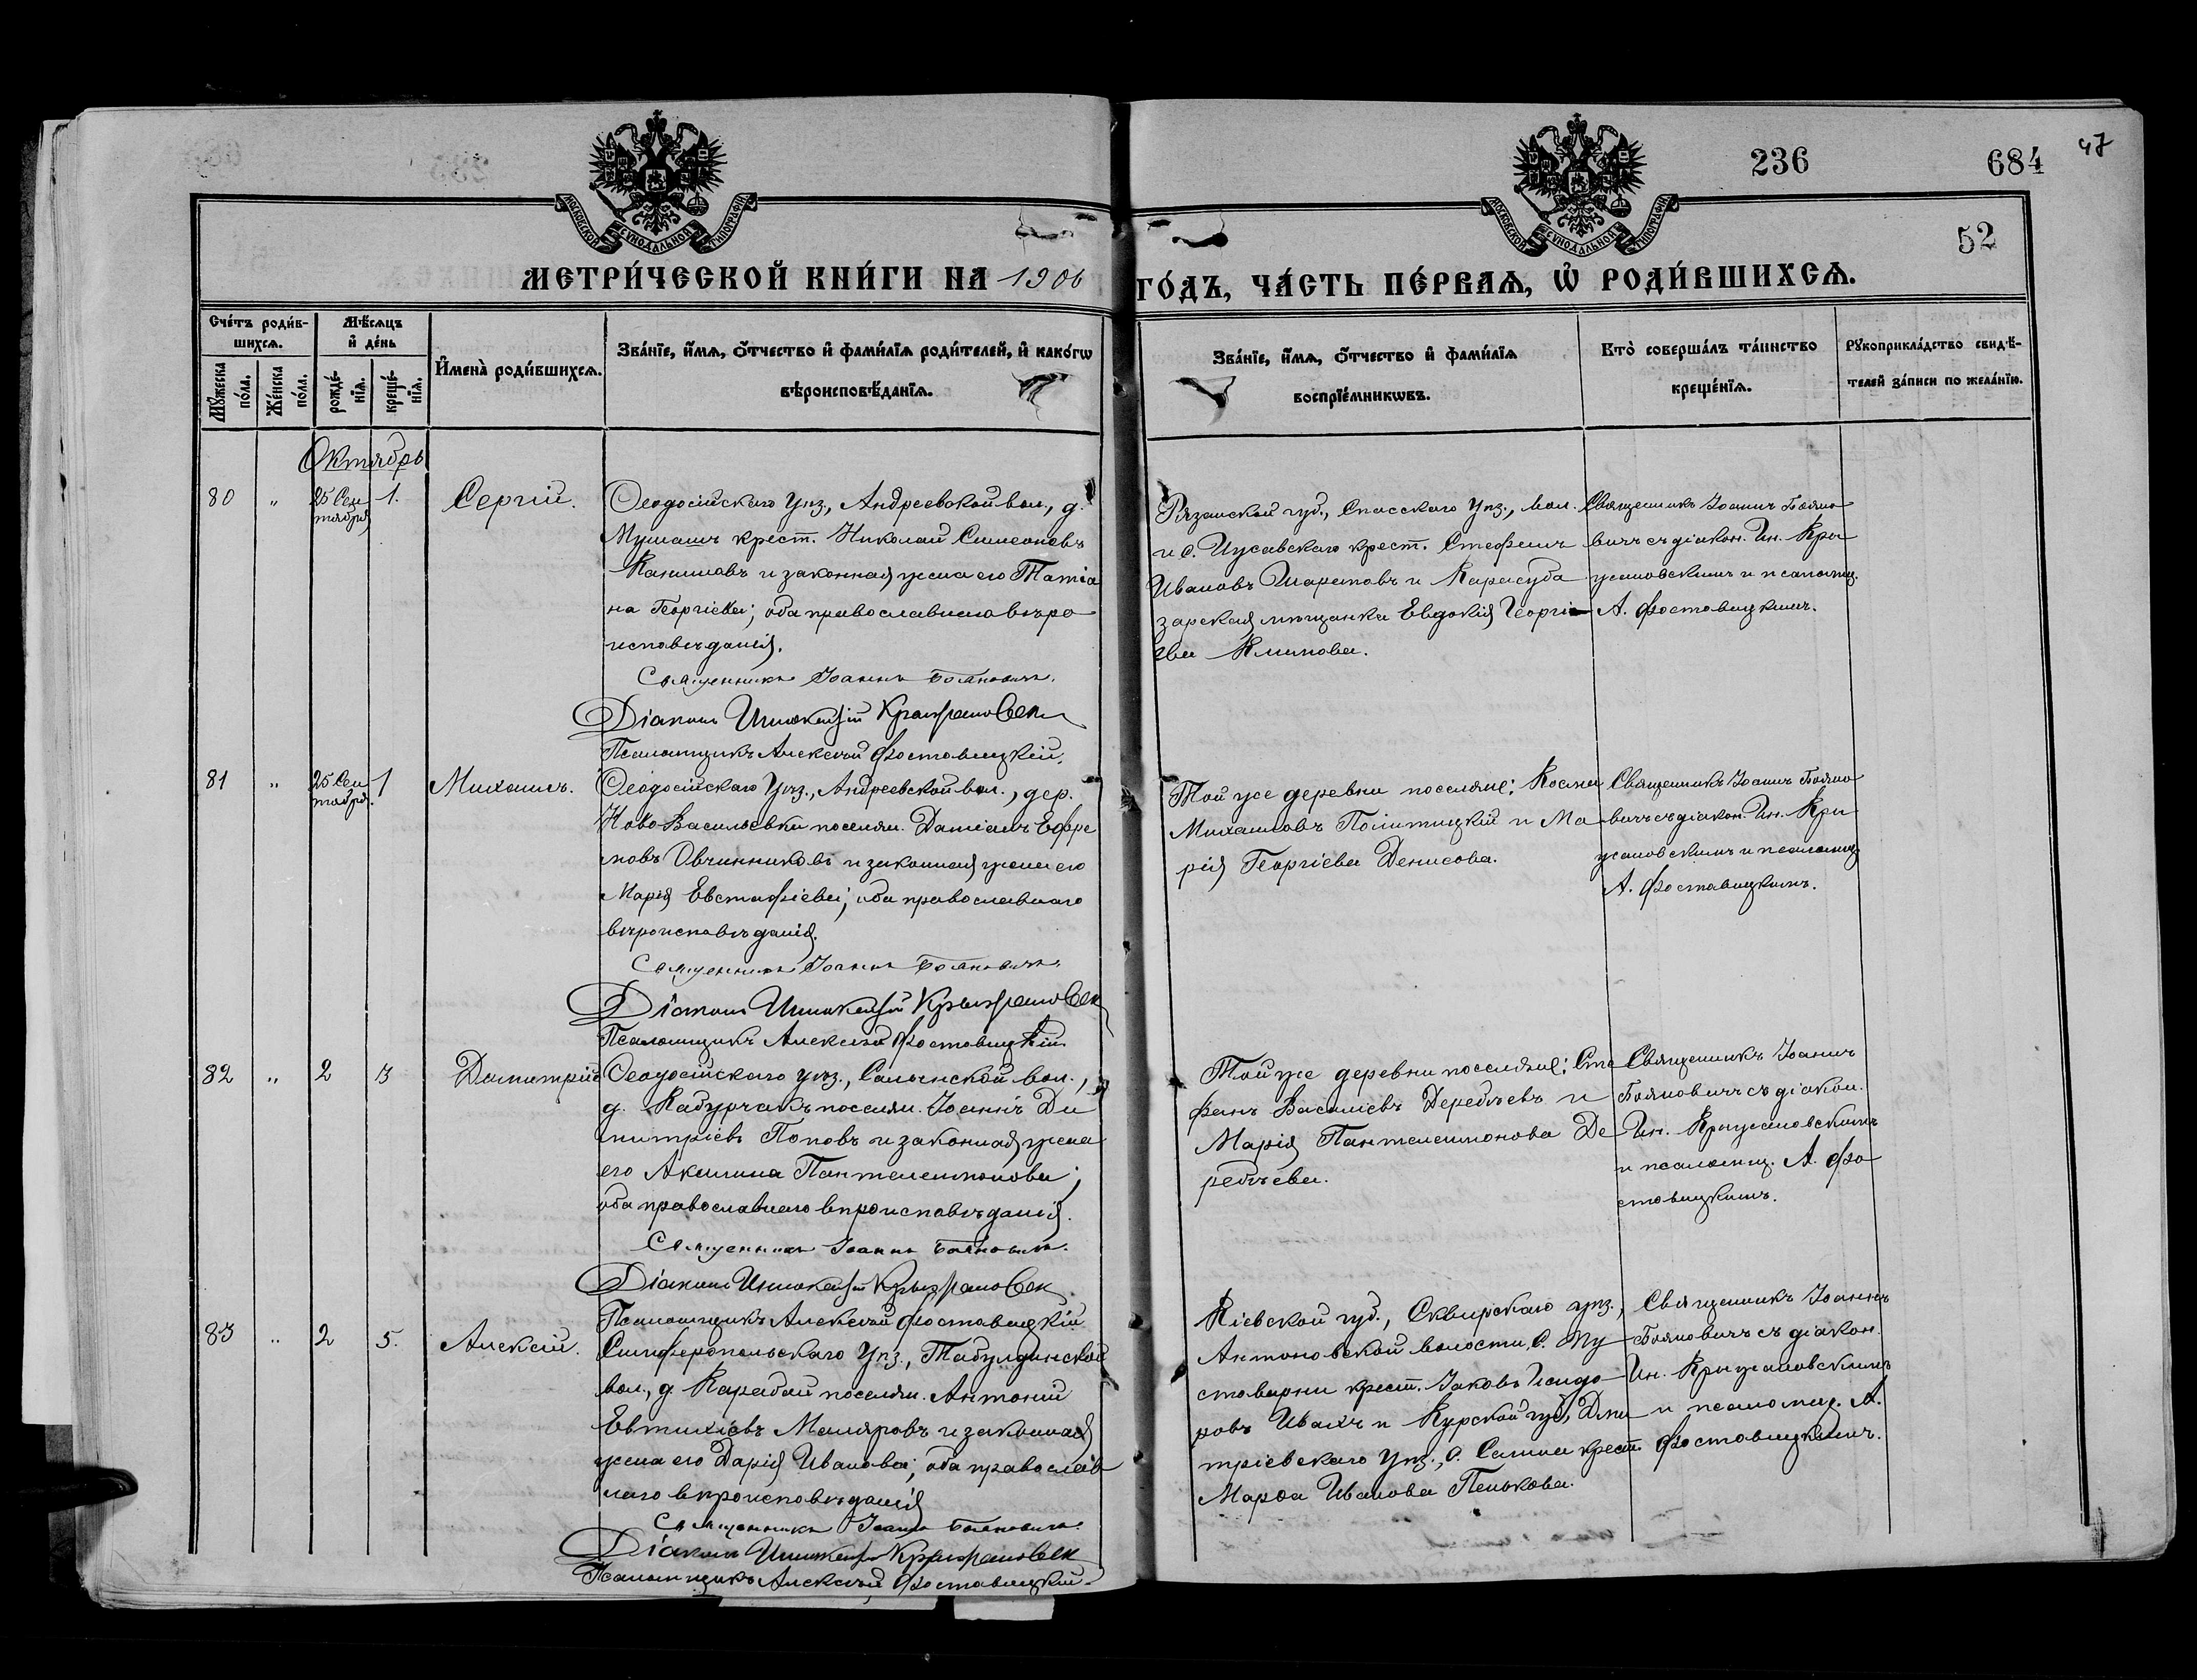 236
684
47
52
МОСКОВСКОЙ СѴНОДАЛЬНОЙ ТИПОГРАФІИ
МОСКОВСКОЙ СѴНОДАЛЬНОЙ ТИПОГРАФІИ
МЕТРИ́ЧЕСКОЙ КНИ́ГИ НА 1906 ГО́ДЪ, ЧА́СТЬ ПЕ́РВАѦ, Ѡ҆ РОДИ́ВШИХСѦ.
Сче́тъ роди́в-
шихсѧ.
Мꙋ́жеска по́ла.
Же́нска по́ла.
Мѣ́сѧцъ
и҆ де́нь
рожде́-
нїѧ.
креще́-
нїѧ.
И҆мена̀ роди́вшихсѧ.
Зва́нїе, и҆́мѧ, ѻ҆́тчество и҆ фами́лїѧ роди́телей, и҆ како́гѡ
вѣроисповѣ́данїѧ.
Зва́нїе, и҆́мѧ, ѻ҆́тчество и҆ фами́лїѧ
воспрїе́мникѡвъ.
Кто̀ соверша́лъ та́инство
креще́нїѧ.
Рꙋкоприкла́дство свидѣ́-
телей за́писи по жела́нїю.
Октябрь
80 " 25 Сен
тября 1. Сергій.
Ѳеодосійскаго уѣз., Андреевской вол., д.
крест. Николай Симеоновъ
и законная жена его Татіа
на Георгіева; оба православнаго вѣро
исповѣданія.
Священникъ Іоаннъ Бояновичъ.
Діаконъ Иннокентій Крыжановск
Псаломщикъ Алексѣй Фоставицкій.
Рязанской губ., Спасскаго уѣз., вол.
и с. Ижевскаго крест. Стефанъ
Ивановъ Шариповъ и Карасуба
зарская мѣщанка Евдокія Георгі
ева Климова.
Священникъ Іоаннъ Бояно
вичъ съ діакон. Ин. Кры
жановскимъ и псаломщ.
А. Фоставицкимъ.
81 " 25 Сен
тября. 1 Михаилъ.
Ѳеодосійскаго уѣз., Андреевской вол., дер.
Ново Васильевки поселян. Даміанъ Ефре
мовъ Овчинниковъ и законная жена его
Марія Евстафіева; оба православнаго
вѣроисповѣданія.
Священникъ Іоаннъ Бояновичъ.
Діаконъ Иннокентій Крыжановск
Псаломщикъ Алексѣй Фоставицкій
Той же деревни поселяне: Косма
Михаиловъ Политицкій и Ма
рія Георгіева Денисова.
Священникъ Іоаннъ Бояно
вичъ съ діакон. Ин. Кры
жановскимъ и псаломщ.
А. Фоставицкимъ.
82 " 2 3 Димитрій
Ѳеодосійскаго уѣз., Салынской вол.,
д. Кабурчакъ поселян. Іоаннъ Ди
митріевъ Поповъ и законная жена
его Акилина Пантелеимонова;
оба православнаго вѣроисповѣданія.
Священникъ Іоаннъ Бояновичъ.
Діаконъ Иннокентій Крыжановск
Псаломщикъ Алексѣй Фоставицкій
Той же деревни поселяне: Сте
фанъ Василіевъ Деребѣевъ и
Марія Пантелеимонова Де
ребѣева.
Священникъ Іоаннъ
Бояновичъ съ діакон.
Ин. Крыжановскимъ
и псаломщ. А. Фо
ставицкимъ.
83 " 2 5. Алексій.
Симферопольскаго уѣз., Табулдинской
вол., д. Карабай поселян. Антоній
Евтихіевъ Маляровъ и законная
жена его Дарія Иванова; оба православ
наго вѣроисповѣданія
Священникъ Іоаннъ Бояновичъ.
Діаконъ Иннокентій Крыжановск
Псаломщикъ Алексѣй Фоставицкій
Кіевской губ., Сквирскаго уѣз.,
Антоновской волости, с. Пу
стоварни крест. Іаковъ Исидо
ровъ Ивахъ и Курской губ., Дми
тріевскаго уѣз., с. крест.
Марѳа Иванова Пенькова.
Священникъ Іоаннъ
Бояновичъ съ діакон.
Ин. Крыжановскимъ
и псаломщ. А.
Фоставицкимъ.